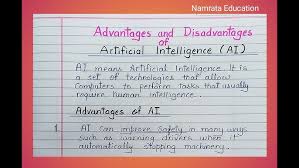 Namrata Education
Advantages and Disadvantages
of
Artificial Intelligence (AI)
AI means Artificial Intelligence. It is
a set of technologies that allow
Computers to perform tasks that usually
require human intelligence.
Advantages of AI
1. AI can improve Safety in many ways
such as warning drivers when it's
automatically stopping machinery.